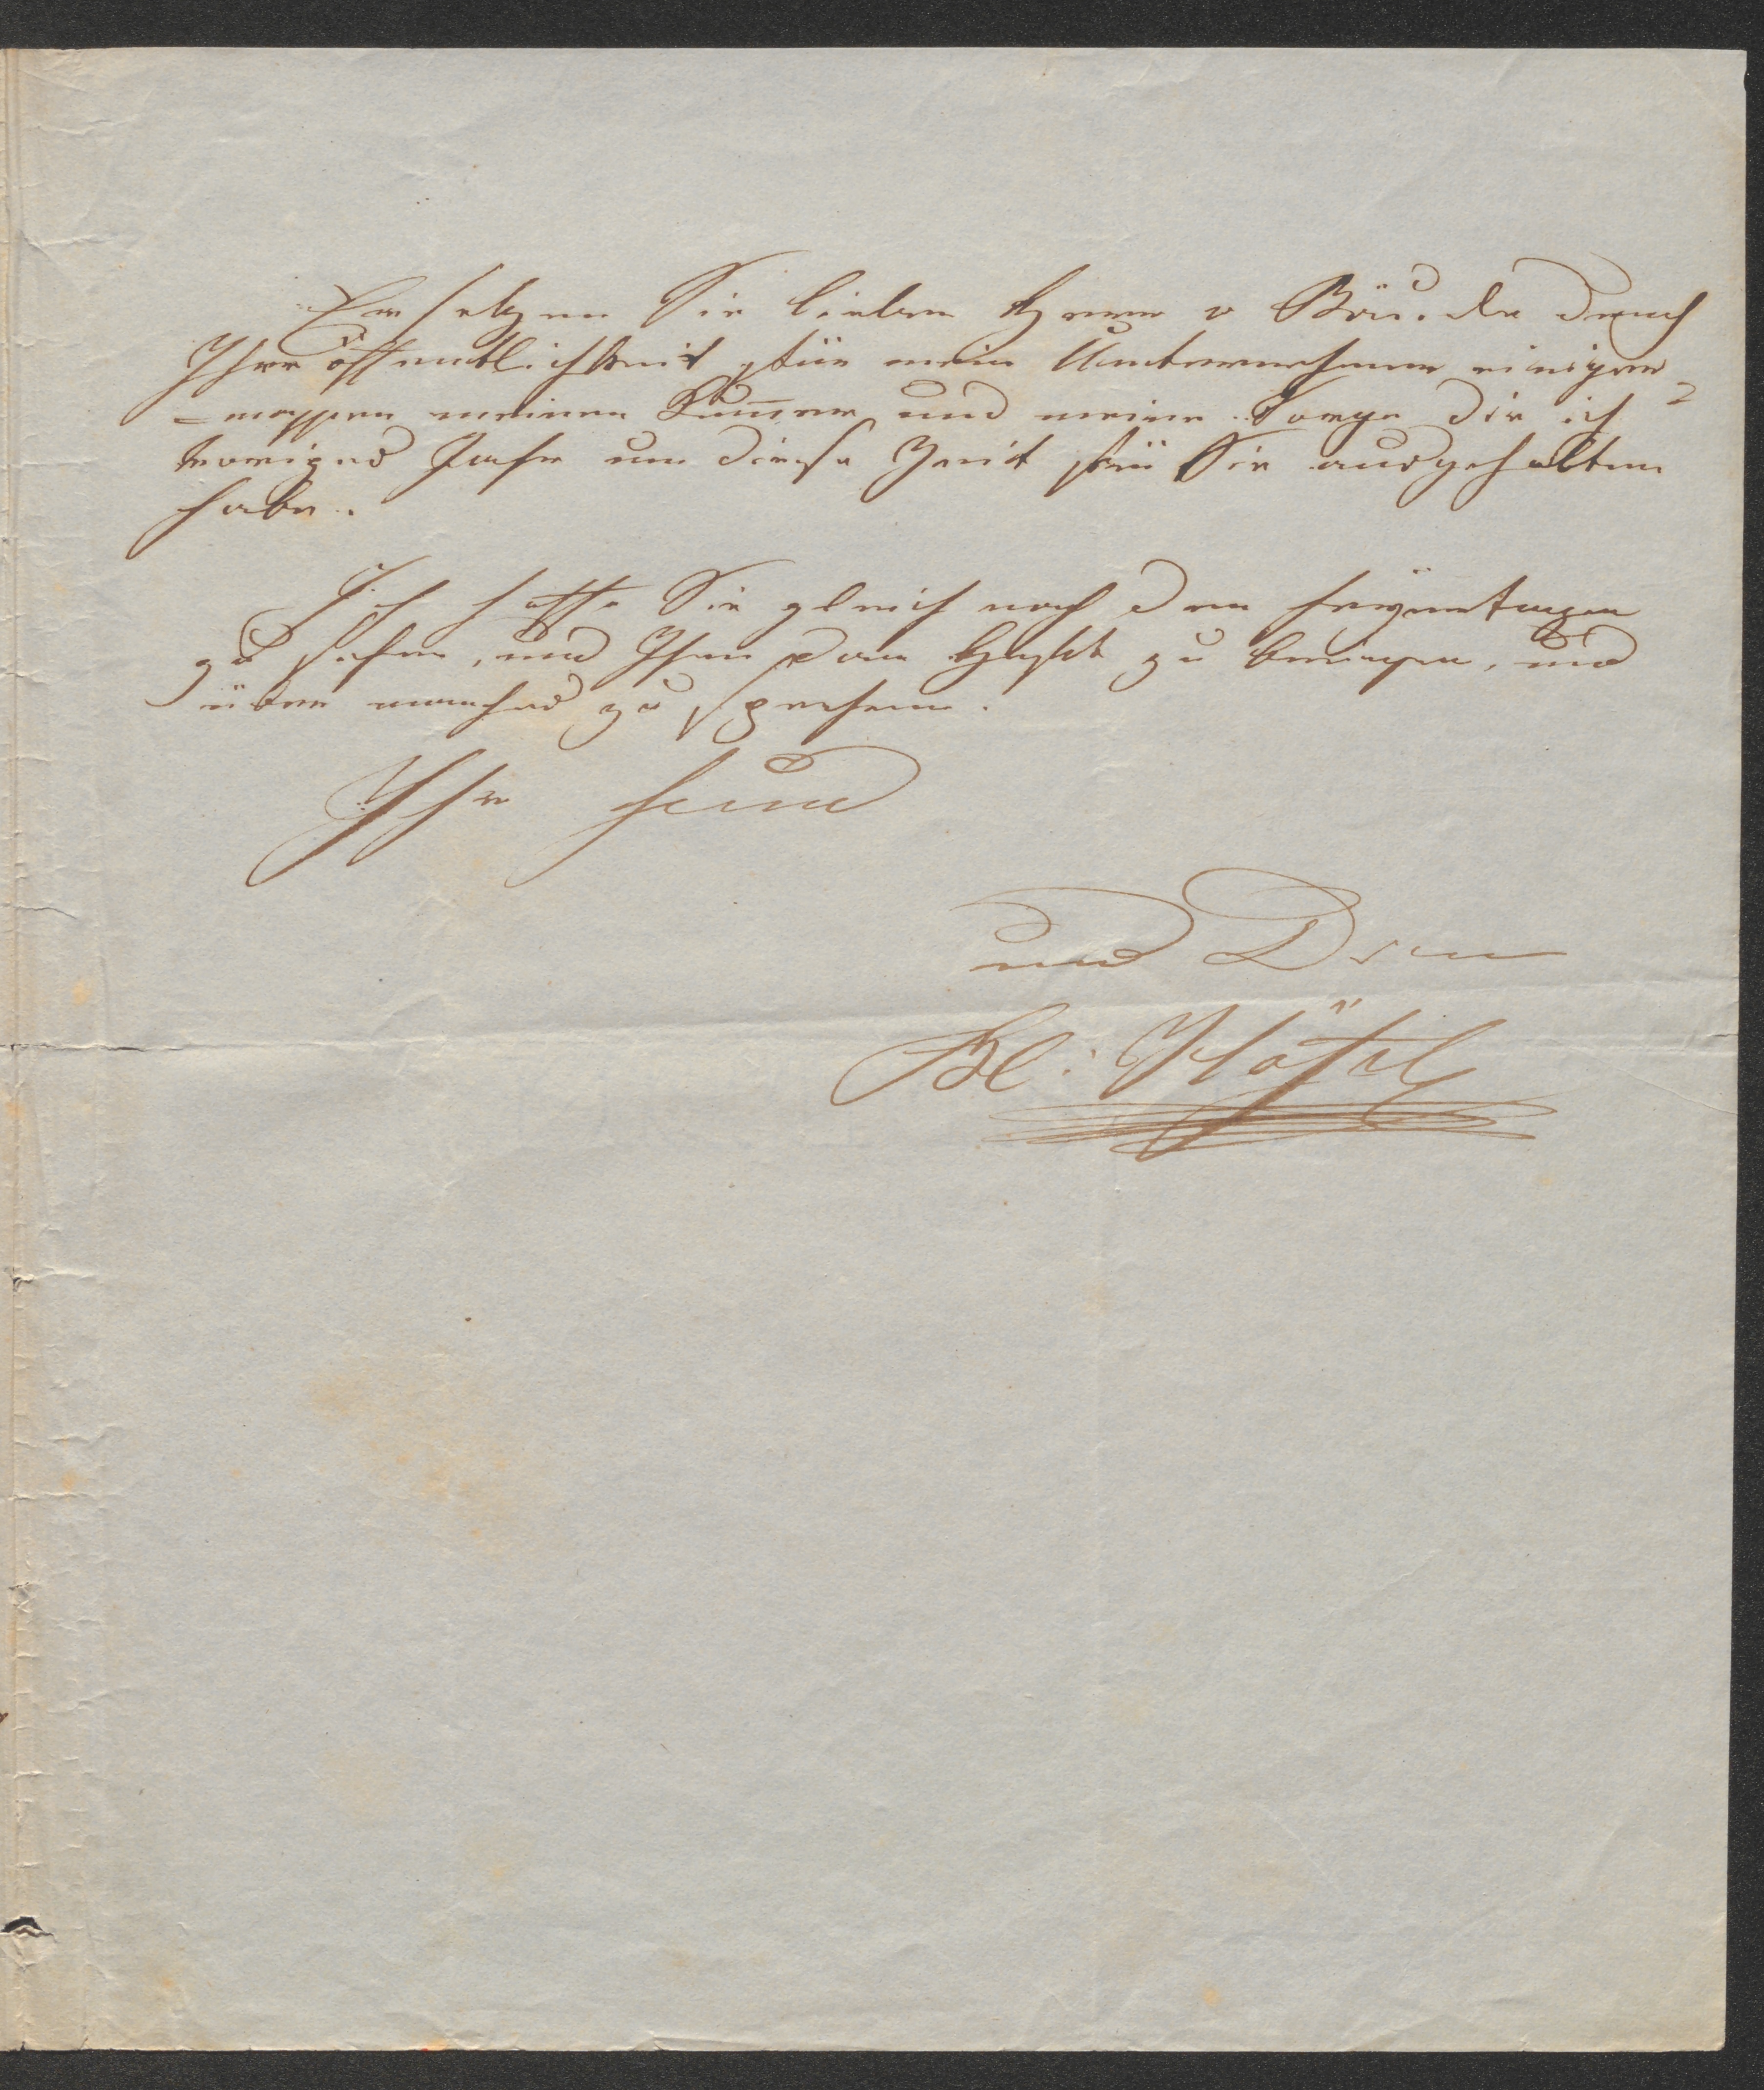 Ersetzen Sie lieber Herr v Bäu.le durch
Ihre öffentlichkeit für mein Unternehmen einiger=
=massen meinen Kum̅er und meine Sorge die ich
voriges Jahr um diese Zeit für Sie ausgehalten
habe.
Ich hoffe Sie gleich nach den feyertagen
zu sehen, und Ihnen dan zu bringen, und
über manches zu sprechen.
Ihr freund
und
Höfel